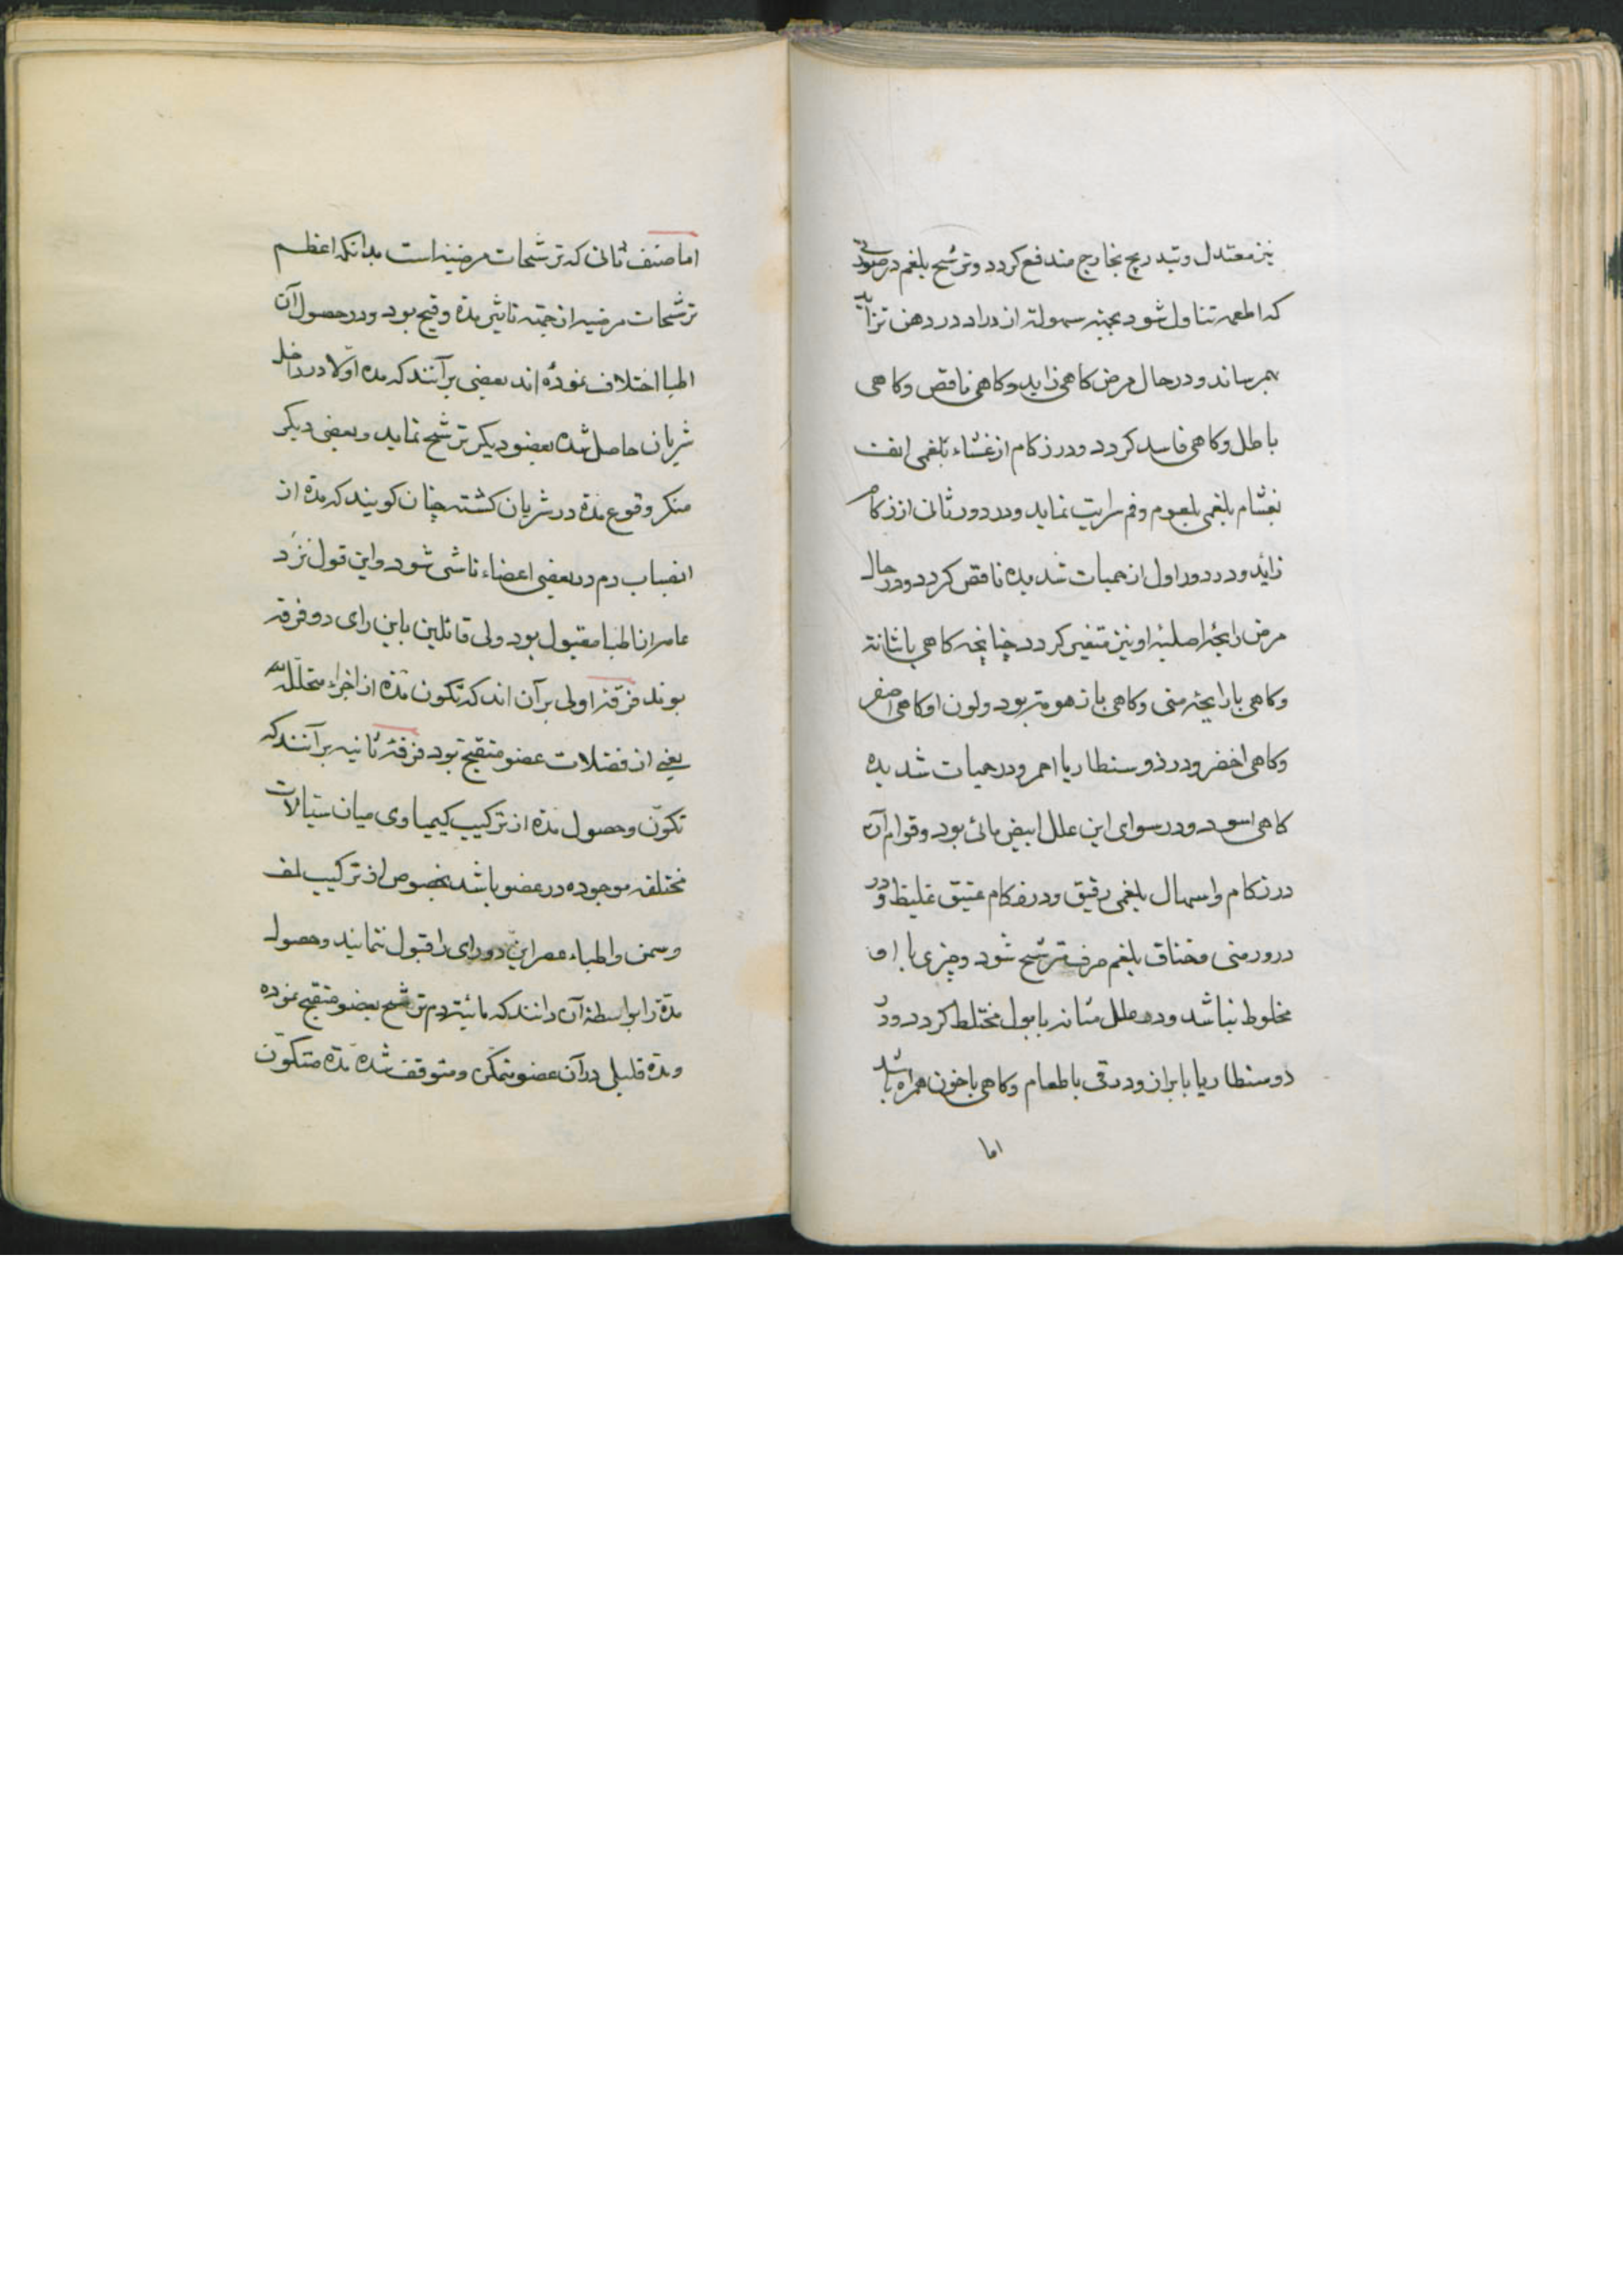 نیز معتدل و بتدریج بخارج مندفع کردد و ترشح بلغم در صورتی
که اطعمه تناول شود بجهته سهولة ازدراد در دهن تزاید
بهم رساند و در حال مرض کاهی زاید و کاهی ناقص و کاهی
باطل و کاهی فاسد کردد و در زکام از غشاء بلغمی انف
بغشاء بلغمی بلعوم و فم سرایت نماید و در دور ثانی از زکام
زاید و در دور اول از حمیات شدیده ناقص کردد و در حال
مرض رایحۀ اصلیۀ او نیز متغیر کردد چنانچه کاهی با نتانة
و کاهی با رایحۀ منی و کاهی با زهومة بود و لون او کاهی اصفر
و کاهی اخضر و در ذوسنطاریا احمر و در حمیات شدیده
کاهی اسود و در سوای این علل ابیض مائی بود و قوام آن
در زکام و اسهال بلغمی رقیق و در زکام عتیق غلیظ و در
درور منی و خناق بلغم صرف ترشح شود و چیزی با او
مخلوط نباشد و در علل مثانه با بول مختلط کردد و در
دوسنطاریا با براز و در قی با طعام و کاهی با خون همراه باشد
اما
اما صنف ثانی که ترشحات مرضیه است بدانکه اعظم
ترشحات مرضیه از جهته تاثیر مدة و قیح بود و در حصول آن
اطبا اختلاف نموده اند بعضی بر آنند که مده اولا در داخل
شریان حاصل شده بعضو دیکر ترشح نماید و بعضی دیکر
منکر وقوع مدة در شریان کشته چنان کویند که مدة از
انصباب دم در بعضی اعضاء ناشی شود و این قول نزد
عامه از اطبا مقبول بود ولی قائلین باین رای دو فرقه
بوند فرقۀ اولی بر آن اند که تکون مدة از اجزاء متحلله
یعنی از فضلات عضو متقیح بود فرقۀ ثانیه بر آنند که
تکون و حصول مدة از ترکیب کیمیاوی میان سیالات
مختلفه موجوده در عضو باشد بخصوص از ترکیب لنف
و سمن و اطباء عصر این دو رای را قبول ننمایند و حصول
مدة را بواسطۀ آن دانند که مائیة دم ترشح بعضو متقیح نموده
و مدة قلیلی در آن عضو متمکن و متوقف شده مدة متکون